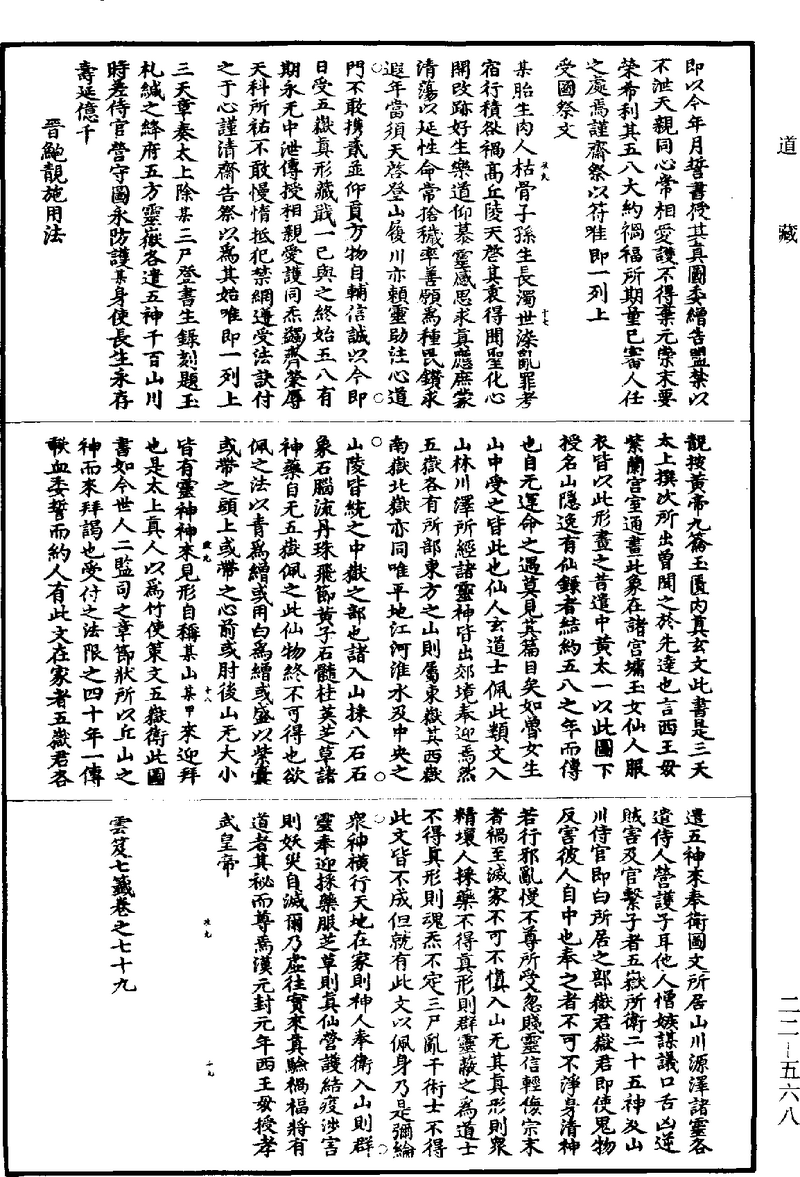 道藏
即以今年月誓書授其真圖委繒告盟禁以
不泄天親同心常相愛護不得棄元崇末要
榮希利其五八大約禍福所期量已審人任
之處焉謹齋祭以符唯即一列上
受圖祭文
某胎生肉人枯骨子孫生長濁世染亂罪考
宿行積欲禍高丘陵天啓其衷得聞聖化心
開改跡好生樂道仰慕靈感思求真應庶蒙
清蕩以延性命常捨穢率善願為種民鑽求
遐年當須天啓登山履川亦賴靈助注心道
門不敢携貳並仰貢方物自輔信誠以今即
日受五嶽真形藏戢一已與之終始五八有
期永无中泄傳授相親愛護同炁蠲齊榮辱
天科所祐不敢慢惰抵犯禁網遵受法訣付
之于心謹清齋告祭以為其始唯即一列上
三天章奏太上除某三尸登書生錄刻題玉
札緘之絳府五方靈嶽各遣五神千百山川
時差侍官營守圖永防護某身使長生永存
壽延億千
晉鮑靚施用法
靚按黄帝九籥玉匱内真玄文此書是三天
太上撰次所出曾聞之於先達也言西王母
紫蘭宫室通畫此象在諸宫墉玉女仙人服
衣皆以此形畫之昔遣中黄太一以此圖下
授名山隱逸有仙錄者結約五八之年而傳
也自无運命之遇莫見其篇目矣如曾女生
山中受之皆此也仙人玄道士佩此類文入
山林川澤所經諸靈神皆出郊境奉迎焉然
五嶽各有所部東方之山則屬東嶽其西嶽
南嶽北嶽亦同唯平地江河淮水及中央之
山陵皆統之中嶽之部也諸入山採八石石
象石腦流丹珠飛節黄子石髓桂英芝草諸
神藥自无五嶽佩之此仙物終不可得也欲
佩之法以青為繒或用白為繒或盛以紫囊
或帶之頭上或帶之心前或肘後山无大小
皆有靈神神來見形自稱某山某甲來迎拜
也是太上真人以為付使策文五嶽衛此圖
書如今世人二監司之章節狀所以丘山之
神而來拜謁也受付之法限之四十年一傳
歃血委誓而約人有此文在家者五嶽君各
遣五神來奉衛圖文所居山川源澤諸靈各
遣侍人營護子耳他人憎嫉謀議口舌凶逆
賊害及官繫子者五嶽所衛二十五神及山
川侍官即白所居之部嶽君嶽君即使鬼物
反害彼人自中也奉之者不可不淨身清神
若行邪亂慢不尊所受忽賤靈信輕侮宗末
者禍至滅家不可不慎入山无其真形則衆
精壞人採藥不得真形則群靈蔽之為道士
不得真形則魂炁不定三尸亂干術士不得
此文皆不成但就有此文以佩身乃是彌綸
衆神横行天地在家則神人奉衛入山則群
靈奉迎採藥服芝草則真仙營護結疫涉害
則妖災自滅爾乃虚往實來真驗禍福將有
道者其秘而尊焉漢元封元年西王母授孝
武皇帝
雲笈七籤卷之七十九
二二-五六八